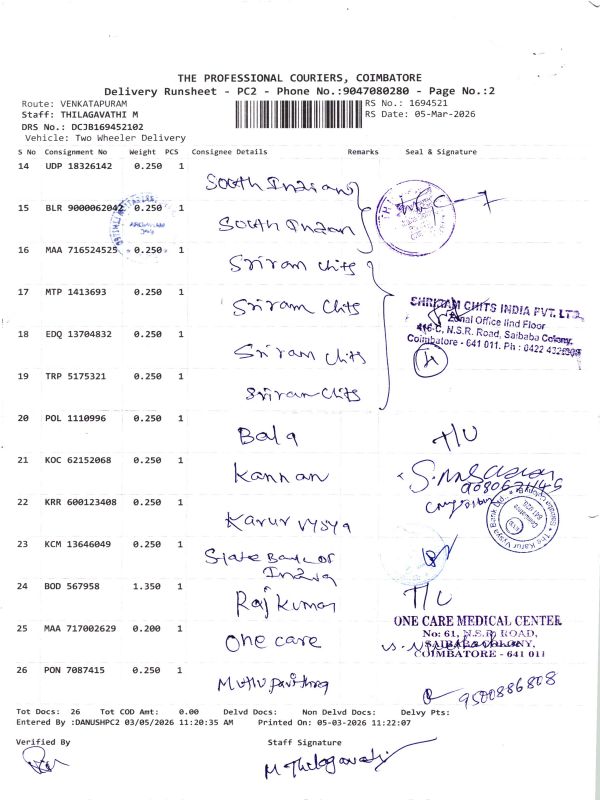 THE PROFESSIONAL COURIERS, COIMBATORE
Delivery Runsheet - PC2 - Phone No.:9047080280 - Page No.:2
Route: VENKATAPURAM RS No.: 1694521
Staff: THILAGAVATHI M RS Date: 05-Mar-2026
DRS No.: DCJB169452102
Vehicle: Two Wheeler Delivery
S No Consignment No Weight PCS Consignee Details Remarks Seal & Signature
14 UDP 18326142 0.250 1 South Indian
15 BLR 9000062042 0.250 1 South Indian
16 MAA 716524525 0.250 1 Sriram chits
17 MTP 1413693 0.250 1 Sriram chits
SHRIRAM CHITS INDIA PVT. LTD.
Zonal Office IInd Floor
416-C, N.S.R. Road, Saibaba Colony,
Coimbatore - 641 011. Ph : 0422
18 EDQ 13704832 0.250 1 Sriram chits
19 TRP 5175321 0.250 1 Sriram chits
20 POL 1110996 0.250 1 Bala T/U
21 KOC 62152068 0.250 1 Kannan
22 KRR 600123408 0.250 1 Karur vysya
23 KCM 13646049 0.250 1 State Bank of
India
24 BOD 567958 1.350 1 Rajkumar
ONE CARE MEDICAL CENTER
No: 61, N.S.R. ROAD,
SAIBABA COLONY,
COIMBATORE - 641 011
25 MAA 717002629 0.200 1 One care
26 PON 7087415 0.250 1 9500886808
Tot Docs: 26 Tot COD Amt: 0.00 Delvd Docs: Non Delvd Docs: Delvy Pts:
Entered By :DANUSHPC2 03/05/2026 11:20:35 AM Printed On :05-03-2026 11:22:07
Verified By Staff Signature
M Thilagavathi